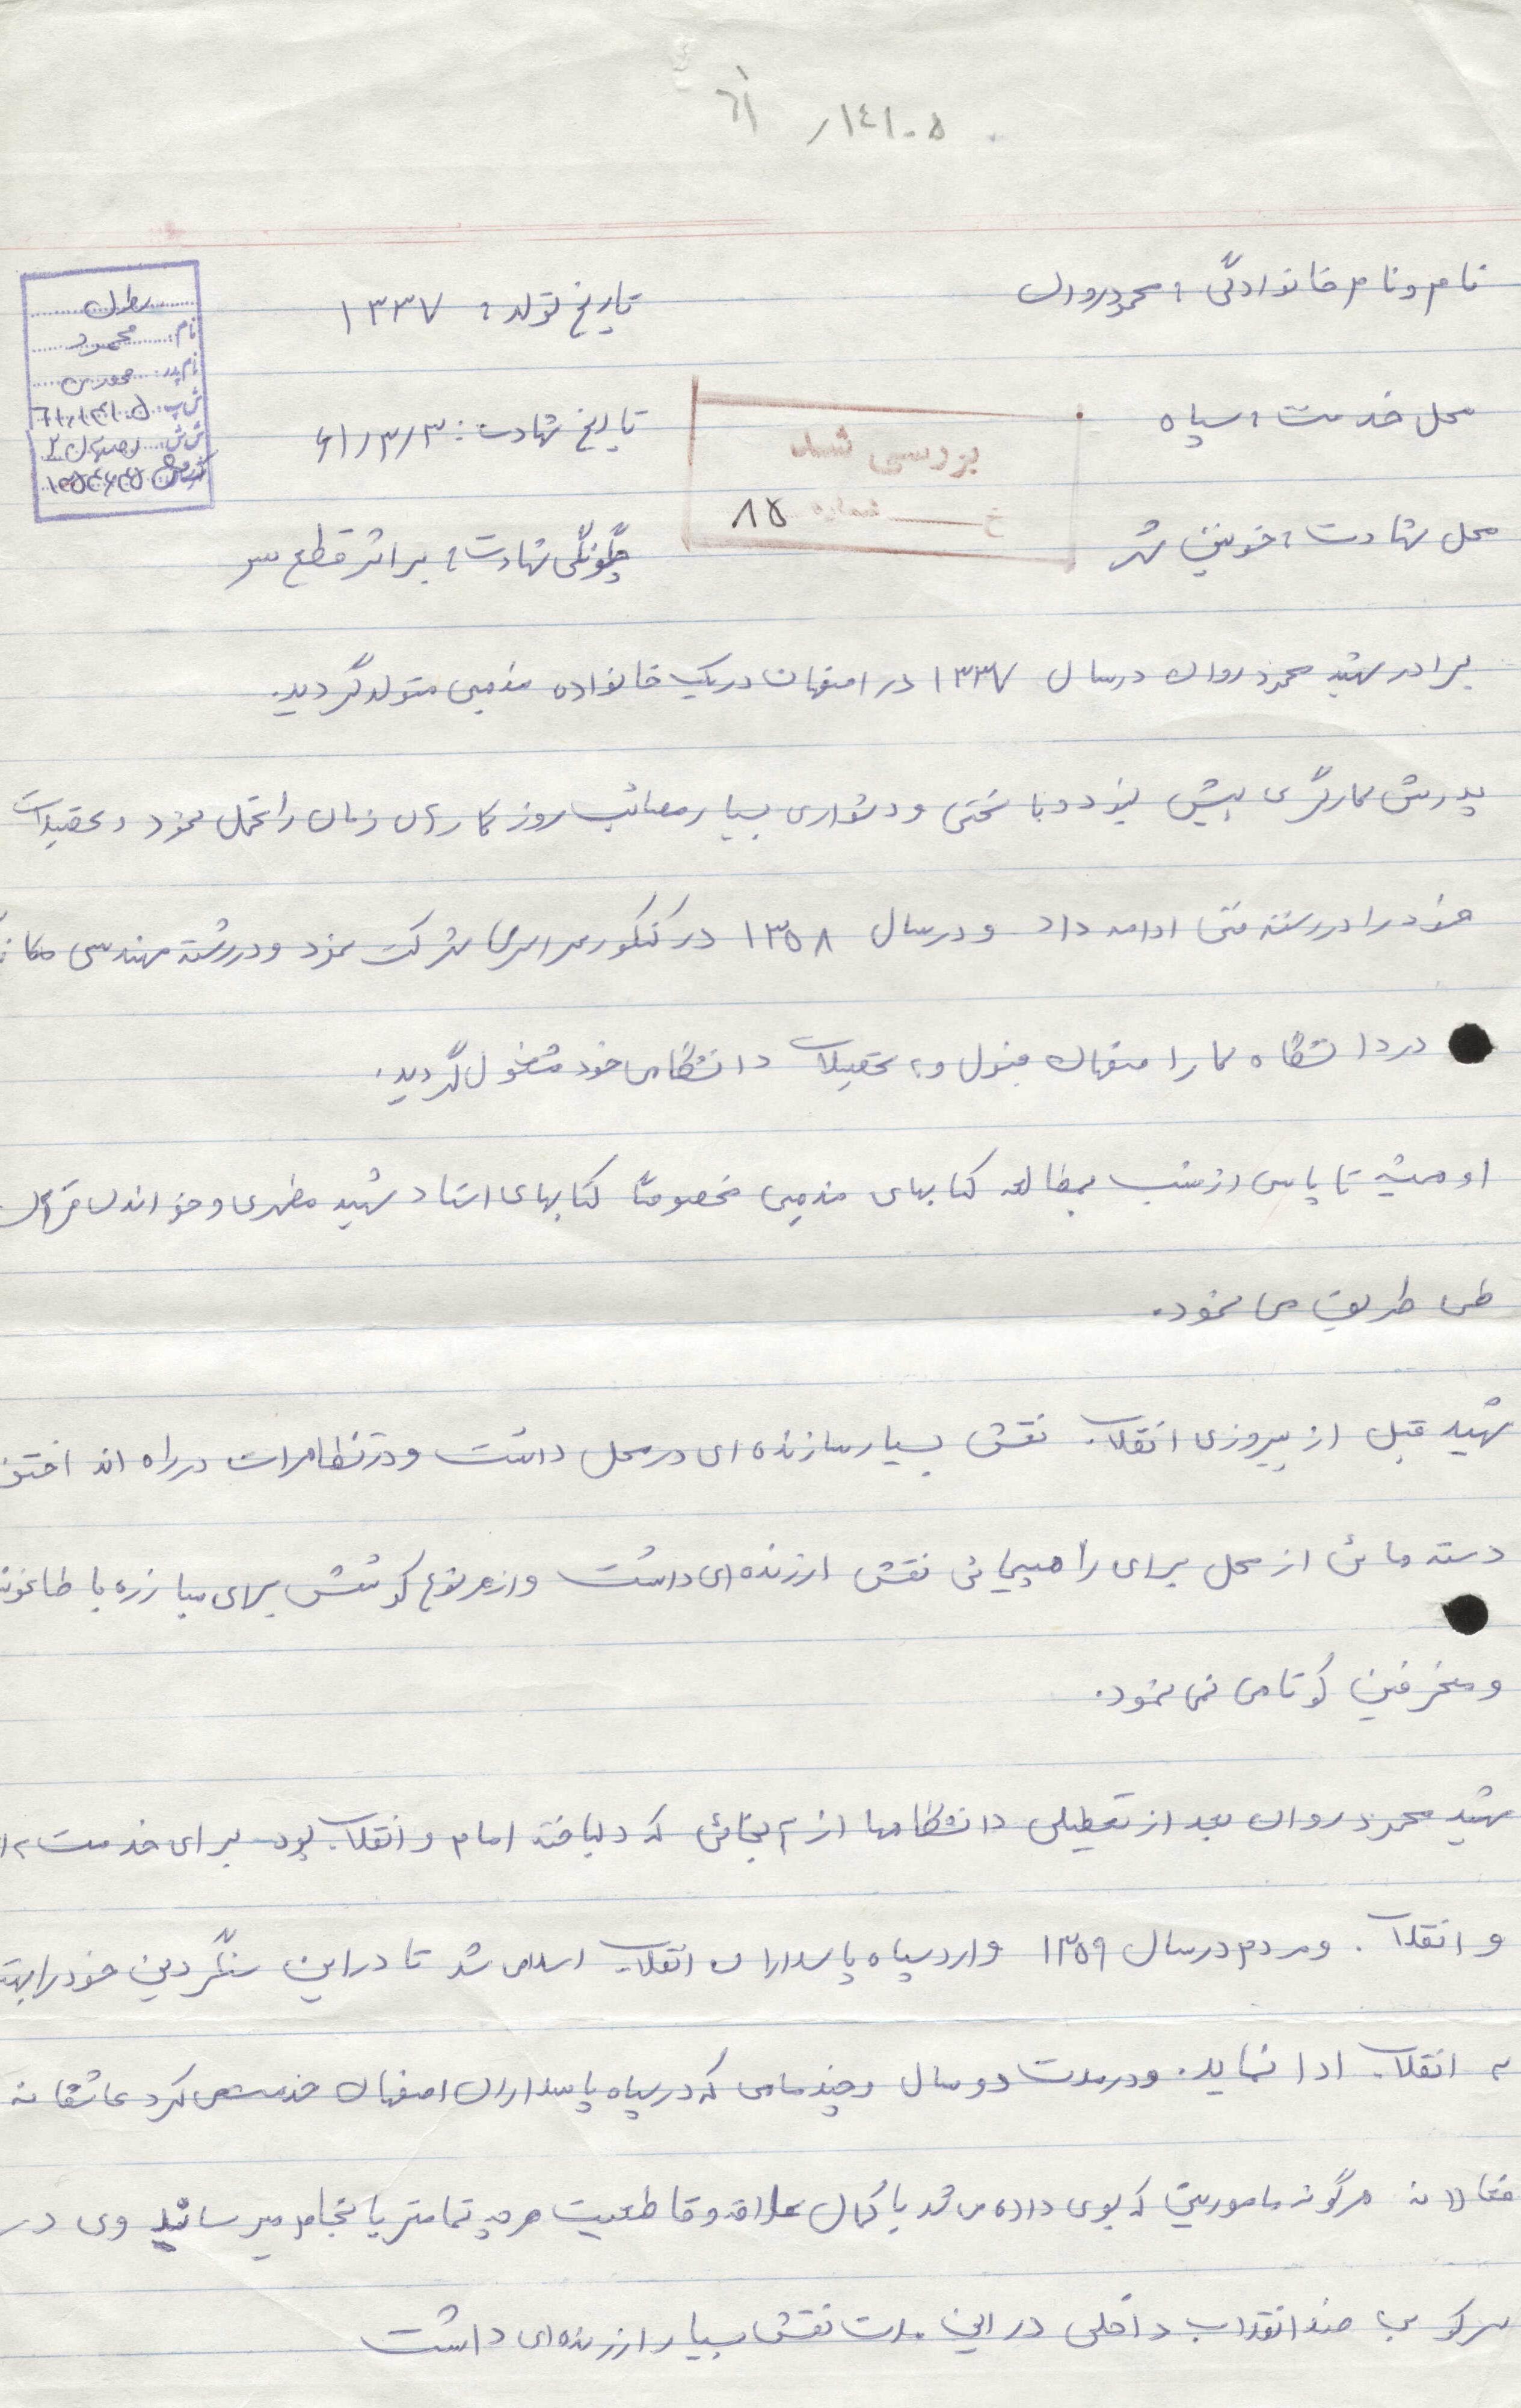 ۶۱/ ۱۴۱۰۵
نام و نام خانوادگی : محمود روان
تاریخ تولد : ۱۳۳۷
محل خدمت : سپاه
تاریخ شهادت : ۶۱/۳/۳
محل شهادت : خونین شهر
چگونگی شهادت : بر اثر قطع سر
نام: محمود
نام پدر:
ش پ: ۶۱/۱۴۱۰۵
ش ش:
بررسی شد
خ شماره ۸۵
برادر شهید محمود روان در سال ۱۳۳۷ در اصفهان در یک خانواده مذهبی متولد گردید.
پدرش کارگری بیش نبود و با سختی و دشواری بسیار مصائب روزگار آن زمان را تحمل نمود و تحصیلات
خود را در رشته فنی ادامه داد و در سال ۱۳۵۸ در کنکور سراسری شرکت نمود و در رشته مهندسی
در دانشگاه اصفهان قبول و به تحصیلات دانشگاهی خود مشغول گردید.
او همیشه تا پاسی از شب بمطالعه کتابهای مذهبی مخصوصاً کتابهای استاد شهید مطهری و خواندن قرآن
طی طریق می نمود.
شهید قبل از پیروزی انقلاب نقش بسیار سازنده ای در محل داشت و در تظاهرات در راه انداختن
دسته هائی از محل برای راهپیمائی نقش ارزنده ای داشت و از هر نوع کوشش برای مبارزه با
و منحرفین کوتاهی نمی نمود.
شهید محمود روان بعد از تعطیلی دانشگاهها از آنجائی که دلباخته امام و انقلاب بود برای خدمت به
و انقلاب . و مردم در سال ۱۳۵۹ وارد سپاه پاسداران انقلاب اسلامی شد تا در این سنگر دین خود را
به انقلاب ادا نماید. و در مدت دو سال و چند ماهی که در سپاه پاسداران اصفهان خدمت می کرد عاشقانه
فعالانه هرگونه ماموریتی که بوی داده می شد با کمال علاقه و قاطعیت هر چه تمامتر بانجام میرسانید وی در
سرکوبی ضد انقلاب داخلی در این مدت نقش بسیار ارزنده ای داشت